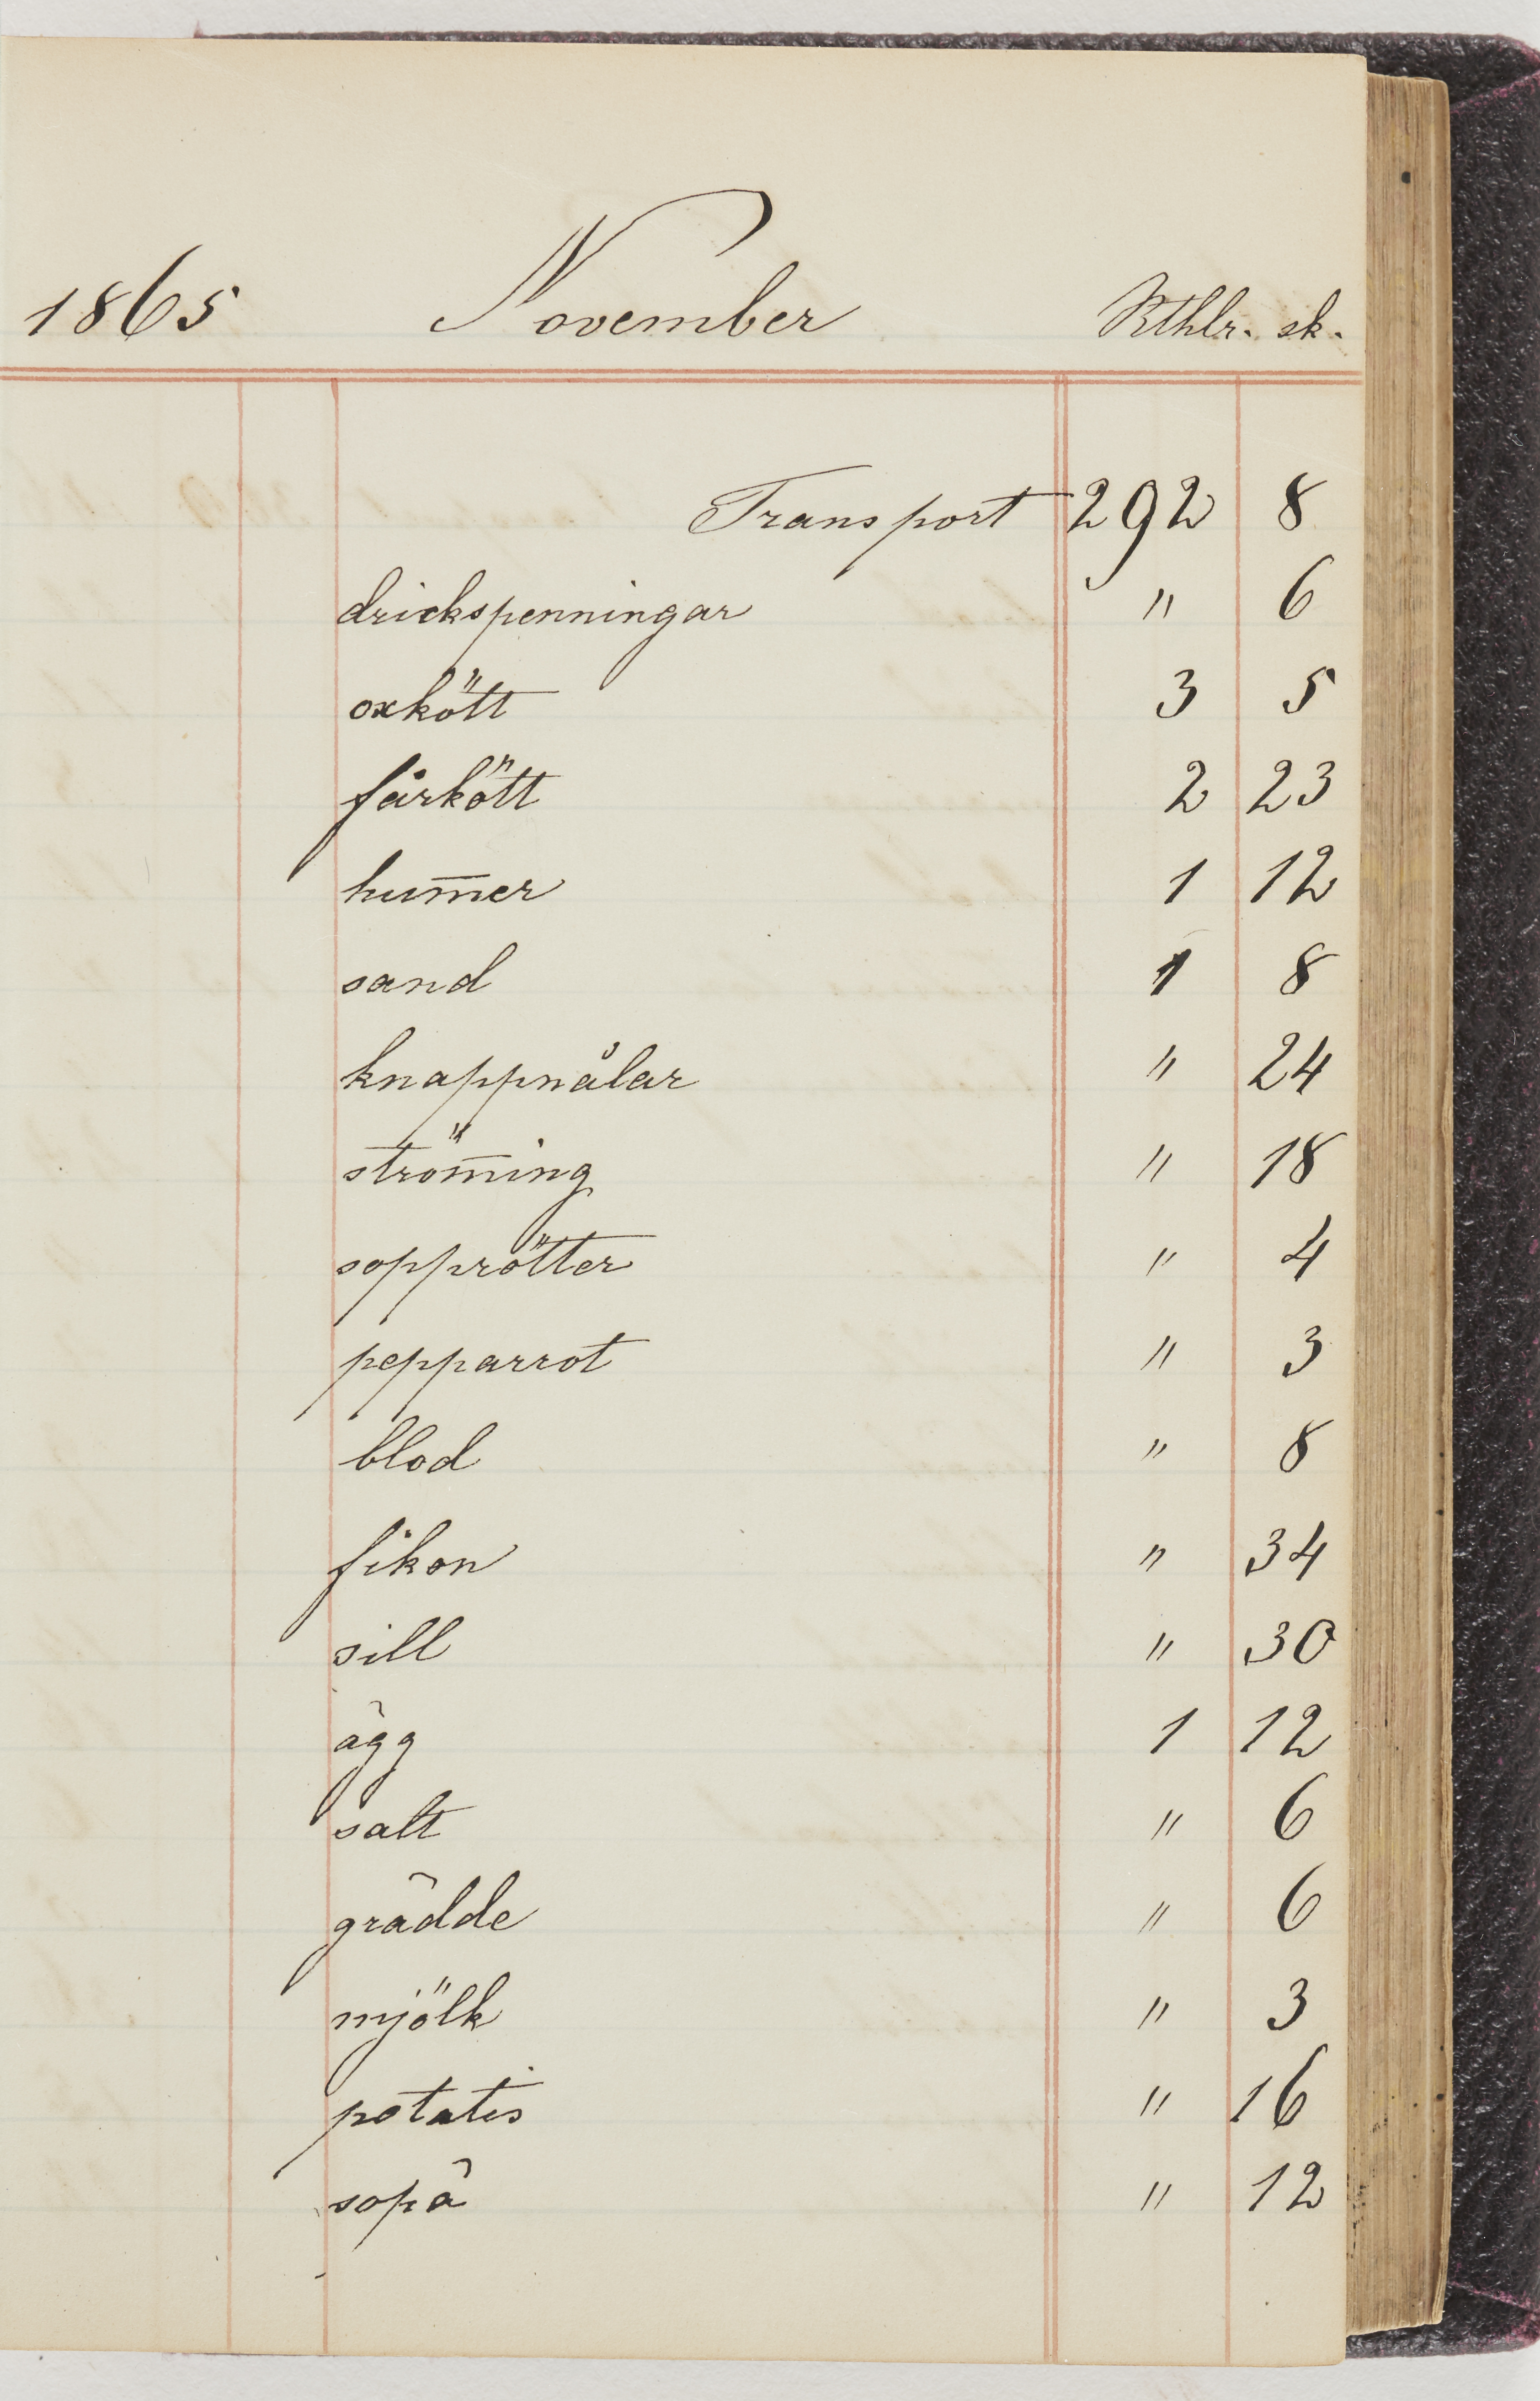 1865 November Rthlr. sk.
Transport 292 8
drickspenningar " 6
oxkött 3 5
fårkött 2 23
hum̄er 1 12
sand 1 8
knappnålar " 24
ström̄ing " 18
sopprötter " 4
pepparrot " 3
blod " 8
fikon " 34
sill " 30
ägg 1 12
salt " 6
grädde " 6
mjölk " 3
potatis " 16
sopa " 12